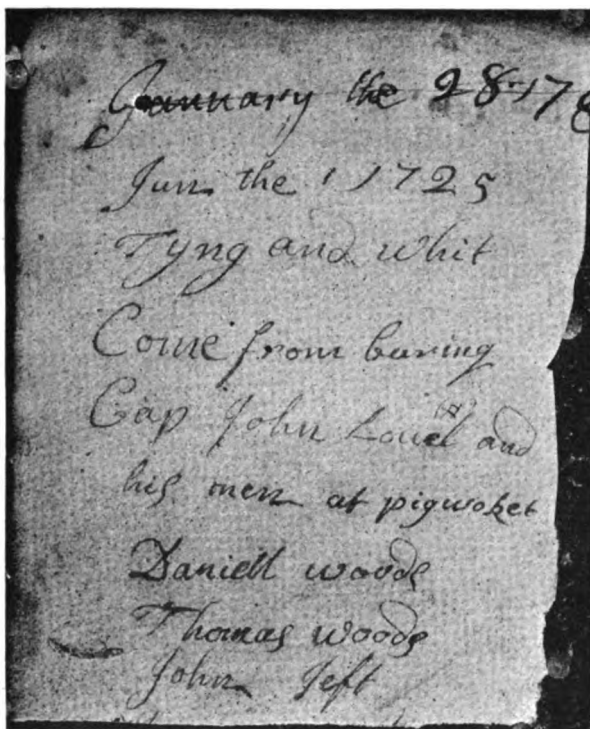 January the 28 17
Jun the 1 1725
Tyng and whit
Come from buring
Cap John Louel and
his men at pigwoket
Daniell woods
Thomas woods
John Jeft